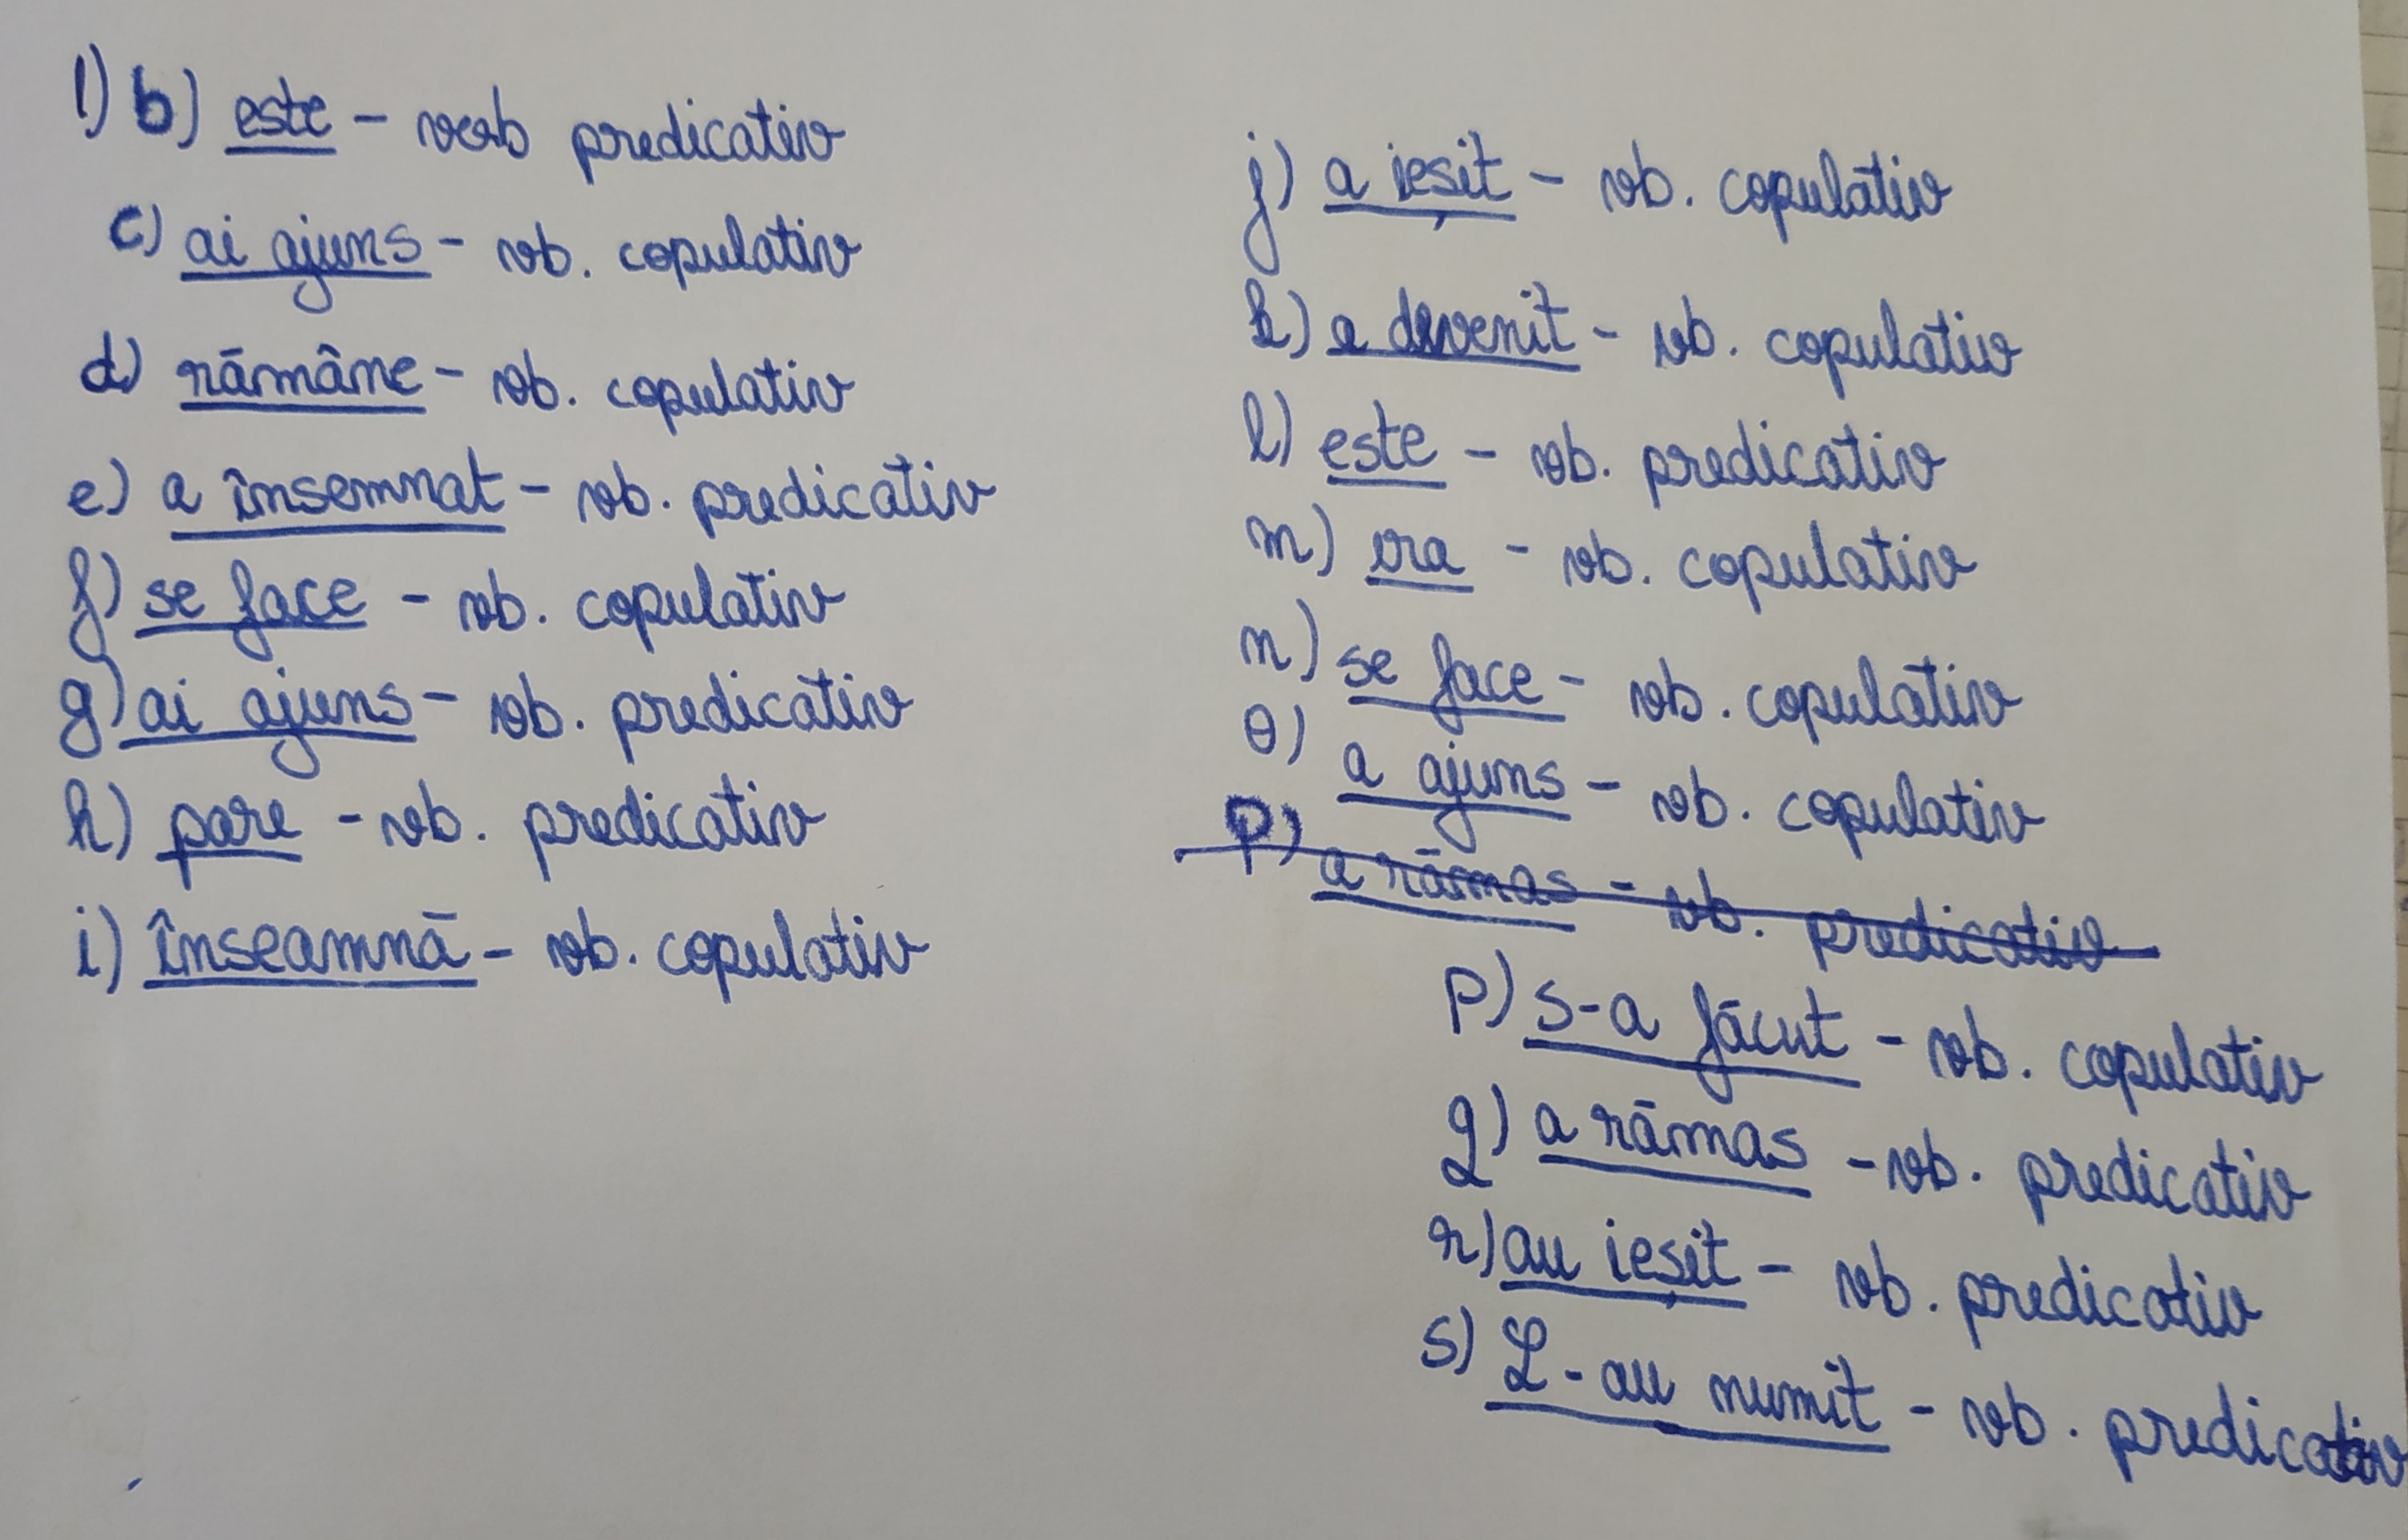 1) b) este - verb predicativ
c) ai ajuns - vb. copulativ
d) rămâne - vb. copulativ
e) a însemnat - vb. predicativ
f) se face - vb. copulativ
g) ai ajuns - vb. predicativ
h) pare - vb. predicativ
i) înseamnă - vb. copulativ
j) a ieșit - vb. copulativ
k) a devenit - vb. copulativ
l) este - vb. predicativ
m) era - vb. copulativ
n) se face - vb. copulativ
o) a ajuns - vb. copulativ
p) a rămas - vb. predicativ
p) s-a făcut - vb. copulativ
q) a rămas - vb. predicativ
r) au ieșit - vb. predicativ
s) L-au numit - vb. predicativ